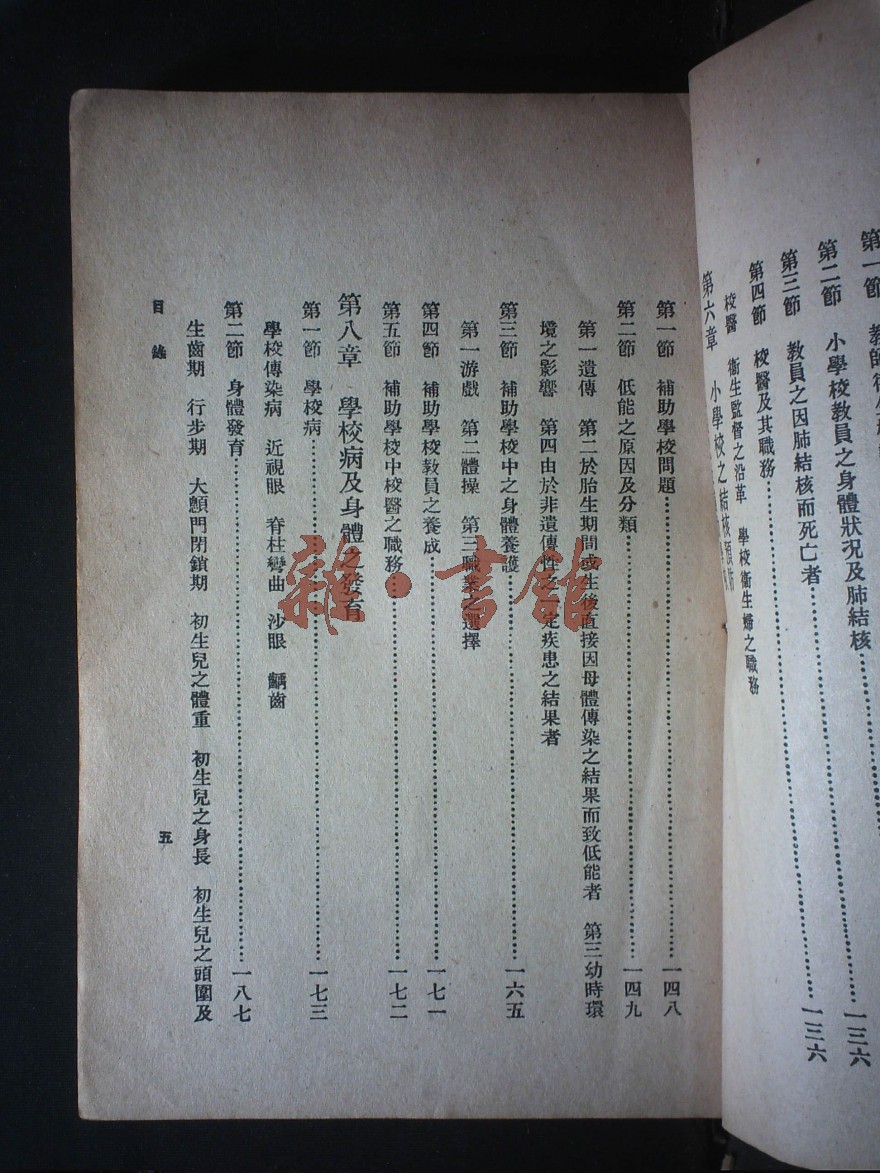 第二節 小學校教員之身體狀況及肺結核……一三六
第三節 教員之因肺結核而死亡者……一三六
第四節 校醫及其職務
校醫 衛生監督之沿革 學校衛生婦之職務
第六章 小學校之結核預防
第一節 補助學校問題……一四八
第二節 低能之原因及分類……一四九
第一遺傳 第二於胎生期間或生後直接因母體傳染之結果而致低能者 第三幼時環
境之影響 第四由於非遺傳性之一定疾患之結果者
第三節 補助學校中之身體養護……一六五
第一游戲 第二體操 第三職業之選擇
第四節 補助學校教員之養成……一七一
第五節 補助學校中校醫之職務……一七二
第八章 學校病及身體之發育
第一節 學校病……一七三
學校傳染病 近視眼 脊柱彎曲 沙眼 齲齒
第二節 身體發育……一八七
生齒期 行步期 大顖門閉鎖期 初生兒之體重 初生兒之身長 初生兒之頭圍及
目錄 五
雜·書館